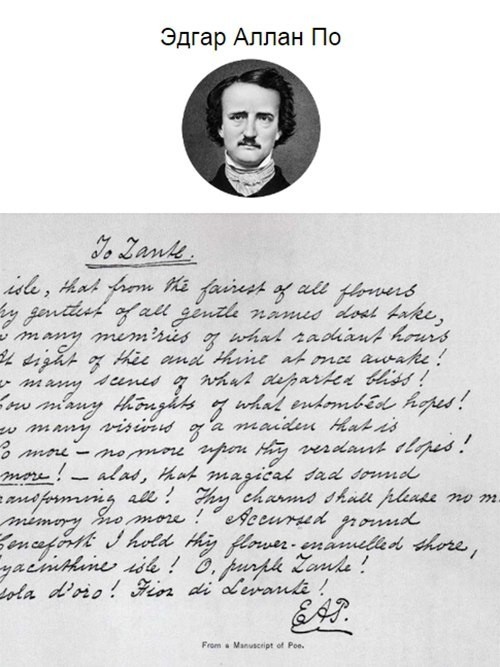 Эдгар Аллан По
To Zante.
isle, that from the fairest of all flowers
hy gentlest of all gentle names dost take,
w many mem'ries of what radiant hours
At sight of thee and thine at once awake!
w many scenes of what departed bliss!
ow many thoughts of what entombéd hopes!
ow many visions of a maiden that is
No more — no more upon thy verdant slopes!
more! — alas, that magical sad sound
ransforming all! Thy charms shall please no m
memory no more! Accursed ground
Henceforth I hold thy flower-enamelled shore,
yacinthine isle! O, purple Zante!
sola d'oro! Fior di Levante!
EAP.
From a Manuscript of Poe.